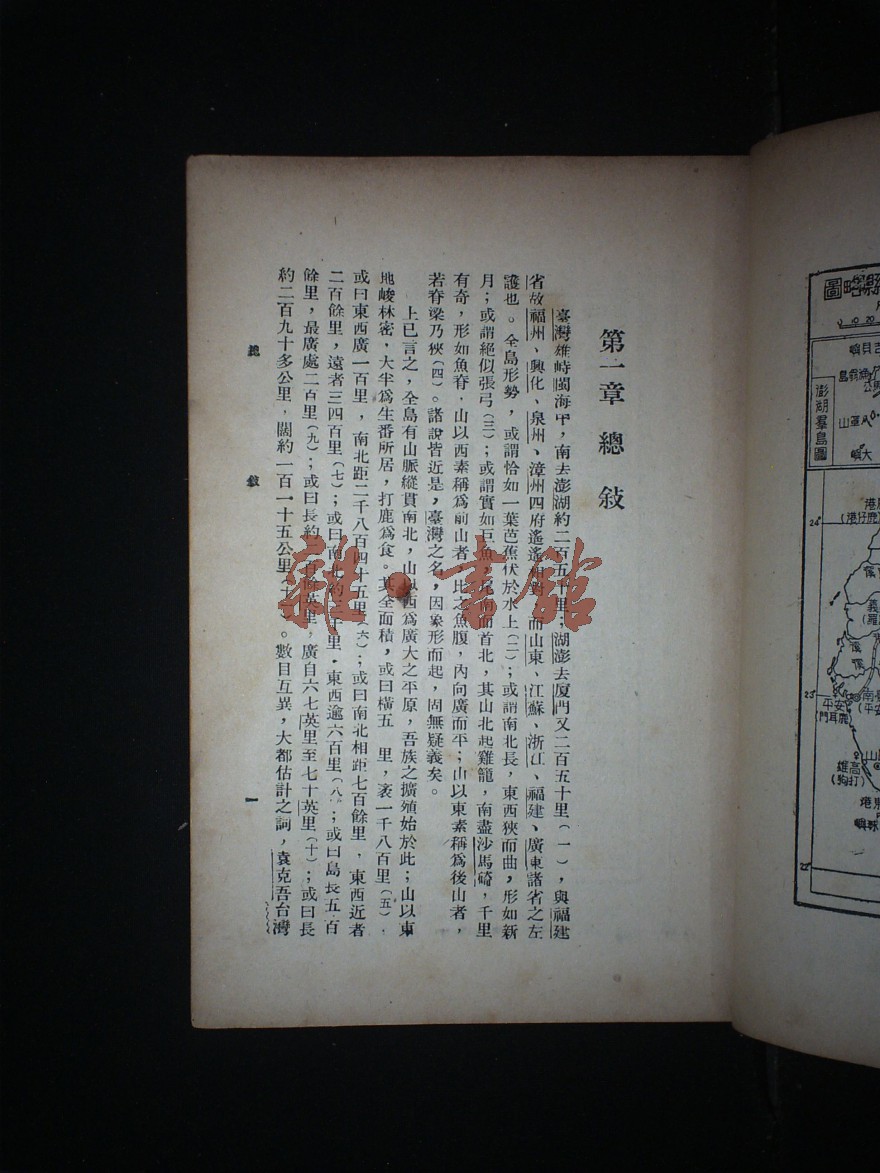 第一章 總敍
臺灣雄峙閩海中，南去澎湖約二百五十里；湖澎去厦門又二百五十里（一），與福建
省故福州、興化、泉州、漳州四府遙遙相對，而山東、江蘇、浙江、福建、廣東諸省之左
護也。全島形勢，或謂恰如一葉芭蕉伏於水上（二）；或謂南北長，東西狹而曲，形如新
月；或謂絕似張弓（三）；或謂實如巨魚，尾南而首北，其山北起雞籠，南盡沙馬碕，千里
有奇，形如魚脊，山以西素稱爲前山者，比之魚腹，內向廣而平；山以東素稱爲後山者，
若脊梁乃狹（四）。諸說皆近是，臺灣之名，因象形而起，固無疑義矣。
上已言之，全島有山脈縱貫南北，山以西爲廣大之平原，吾族之擴殖始於此；山以東
地峻林密，大半爲生番所居，打鹿爲食。其全面積，或曰橫五 里，袤一千八百里（五），
或曰東西廣一百里，南北距二千八百四十五里（六）；或曰南北相距七百餘里，東西近者
二百餘里，遠者三四百里（七）；或曰南北約 千里，東西逾六百里（八）；或曰島長五百
餘里，最廣處二百里（九）；或曰長約 百餘英里，廣自六七英里至七十英里（十）；或曰長
約二百九十多公里，闊約一百一十五公里（十 ）。數目互異，大都估計之詞，袁克吾台灣
總 敍 一
雜·書館
縣略圖
吉貝嶼
澎湖羣島圖
大嶼
24°
(鹿仔港)
23°
安平
(鹿耳門)
高雄
(打狗)
22°